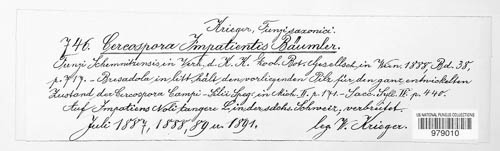 Krieger, Fungi saxonici.
746. Cercospora Impatientis Bäumler.
Fungi Schemnitzensis, in Verh. d. K. K. Zool. Bot. Gesellsch. in Wien. 1888. Bd. 38,
p. 717. – Bresadola in litt. hält den vorliegenden Pilz für den ganz entwickelten
Zustand der Cercospora Campi-Silii Speg. in Mich. II. p. 171. – Sacc. Syll. IV. p. 440.
Auf Impatiens Noli tangere L. in der sächs. Schweiz, verbreitet.
Juli 1887, 1888, 89 u. 1891. leg. W. Krieger.
US NATIONAL FUNGUS COLLECTIONS
979010